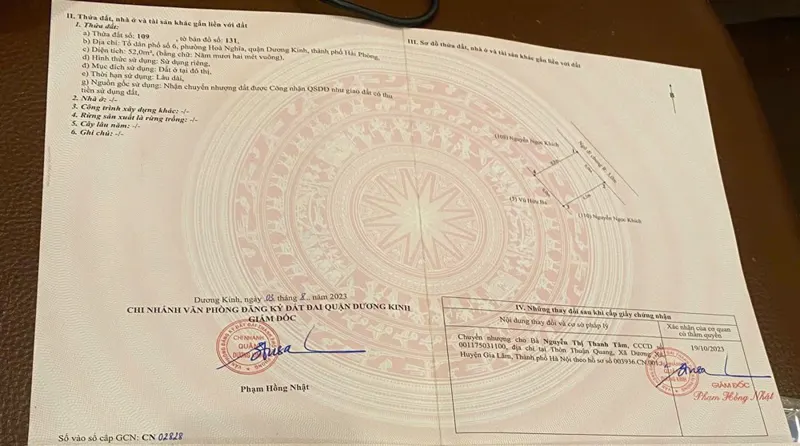 II. Thửa đất, nhà ở và tài sản khác gắn liền với đất
1. Thửa đất:
a) Thửa đất số: 109 , tờ bản đồ số: 131,
b) Địa chỉ: Tổ dân phố số 6, phường Hoà Nghĩa, quận Dương Kinh, thành phố Hải Phòng,
c) Diện tích: 52,0m², (bằng chữ: Năm mươi hai mét vuông),
d) Hình thức sử dụng: Sử dụng riêng,
đ) Mục đích sử dụng: Đất ở tại đô thị,
e) Thời hạn sử dụng: Lâu dài,
g) Nguồn gốc sử dụng: Nhận chuyển nhượng đất được Công nhận QSDĐ như giao đất có thu
tiền sử dụng đất,
2. Nhà ở: -/-
3. Công trình xây dựng khác: -/-
4. Rừng sản xuất là rừng trồng: -/-
5. Cây lâu năm: -/-
6. Ghi chú: -/-
Dương Kinh, ngày 03 tháng 8 năm 2023
CHI NHÁNH VĂN PHÒNG ĐĂNG KÝ ĐẤT ĐAI QUẬN DƯƠNG KINH
GIÁM ĐỐC
CHI NHÁNH
QUẬN
DƯƠNG KINH
Phạm Hồng Nhật
Số vào sổ cấp GCN: CN 02828
III. Sơ đồ thửa đất, nhà ở và tài sản khác gắn liền với đất
(108) Nguyễn Ngọc Khích
Ngõ đi chung
(7) Vũ Hữu Bu
(110) Nguyễn Ngọc Khích
IV. Những thay đổi sau khi cấp giấy chứng nhận
Nội dung thay đổi và cơ sở pháp lý
Xác nhận của cơ quan
có thẩm quyền
Chuyển nhượng cho Bà Nguyễn Thị Thanh Tâm, CCCD
001175031100, địa chỉ tại Thôn Thuận Quang, Xã Dương Xá,
Huyện Gia Lâm, Thành phố Hà Nội theo hồ sơ số 003916.CN.001
19/10/2023
GIÁM ĐỐC
Phạm Hồng Nhật